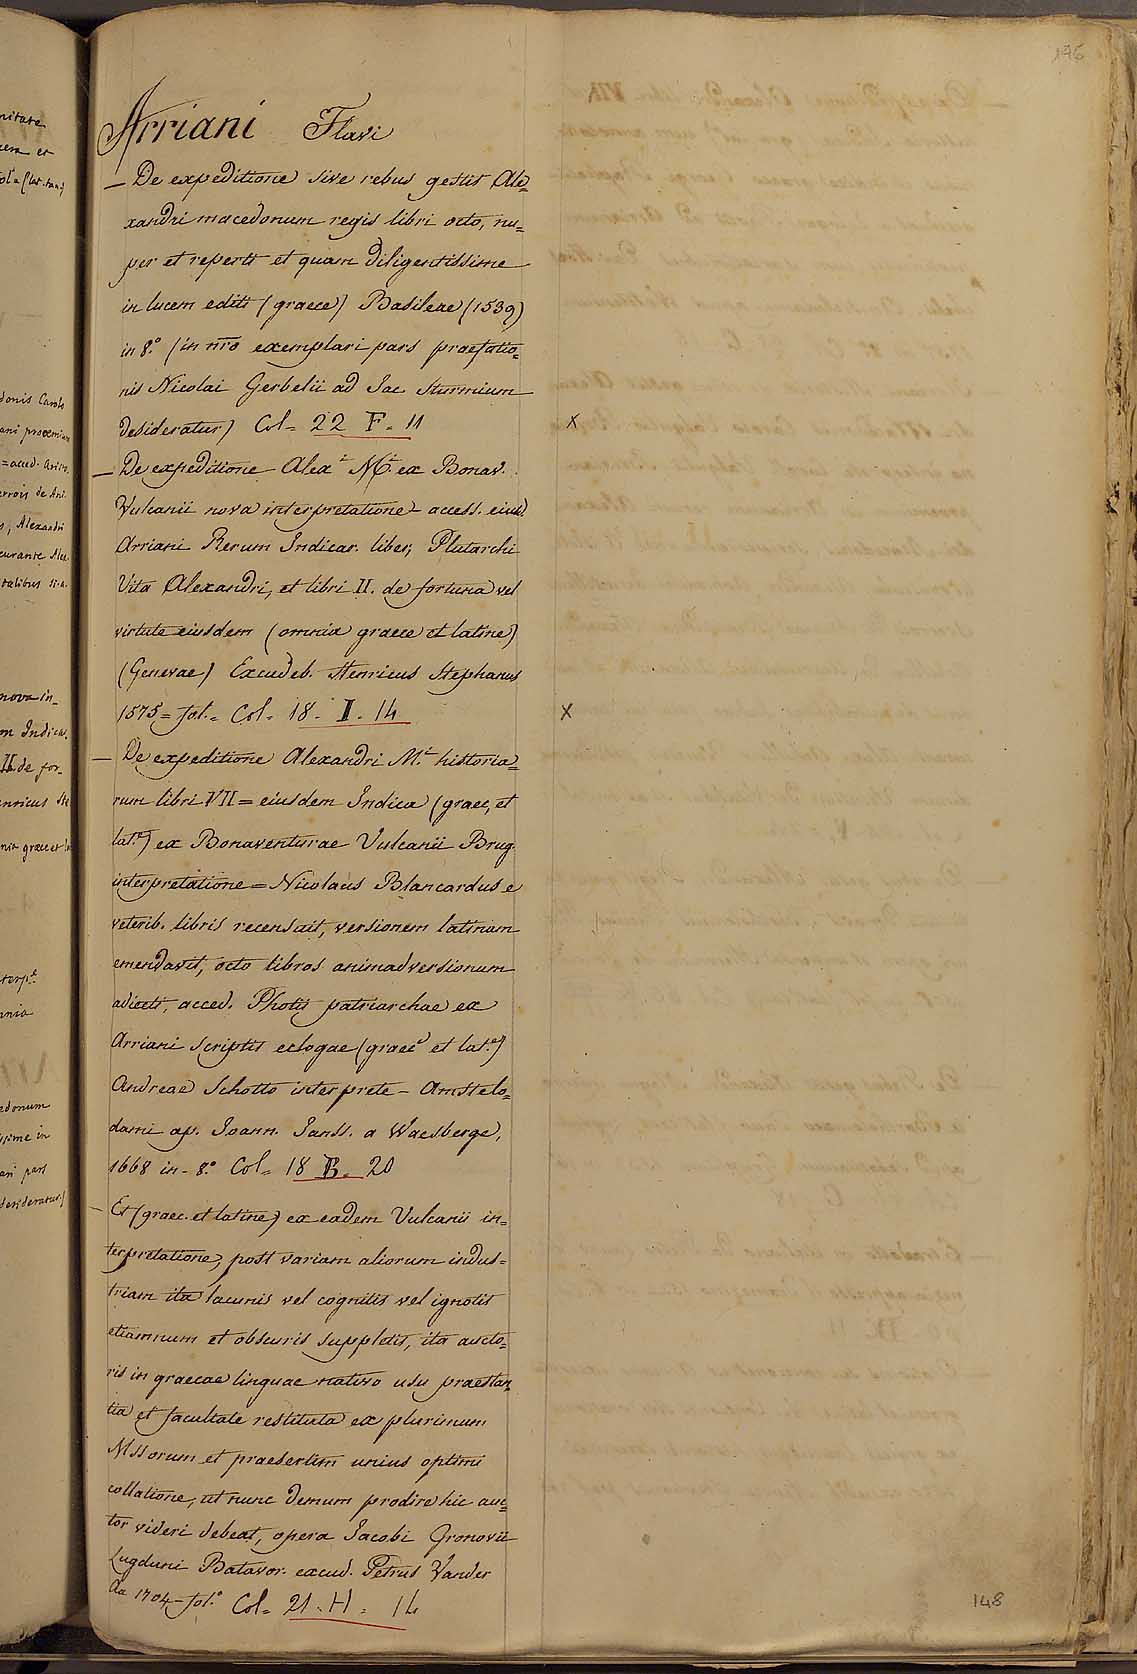 146
Arriani Flavi
— De expeditione sive rebus gestis Ale=
xandri macedonum regis libri octo, nu=
per et reperti et quam diligentissime
in lucem editi (graece) Basileae (1539)
in 8.° (in nr̃o exemplari pars praefatio=
nis Nicolai Gerbelii ad Iac Sturmium
desideratur) Col= 22 F. 11
x
— De expeditione Alex.i M.i ex Bonav.
Vulcanii nova interpretatione - access. eiusd.
Arriani Rerum Indicar. liber; Plutarchi
Vita Alexandri, et libri II. de fortuna vel
virtute eiusdem (omnia graece et latine)
(Genevae) Excudeb. Henricus Stephanus
1575= fol.= Col. 18. I. 14
x
— De expeditione Alexandri M.i historia=
rum libri VII = eiusdem Indica (graec, et
lat.e) ex Bonaventurae Vulcanii Brug.
interpretatione = Nicolaus Blancardus e
veterib. libris recensuit, versionem latinam
emendavit, octo libros animadversionum
adiecit, acced. Photii patriarchae ex
Arriani scriptis eclogae (graece et lat.e)
Andreae Schotto interprete - Amstelo=
dami ap. Joann. Janss. a Waesberge,
1668 in- 8.° Col= 18 B. 20
— Et (graec. et latine) ex eadem Vulcanii in=
terpretatione, post variam aliorum indus=
triam ita lacunis vel cognitis vel ignotis
etiamnum et obscuris suppletis, ita aucto=
ris in graecae linguae nativo usu praestan=
tia et facultate restituta ex plurimum
Mssorum et praesertim unius optimi
collatione, ut nunc demum prodire hic auc=
tor videri debeat, opera Jacobi Gronovii
Lugduni Batavor. excud. Petrus Vander
Aa 1704- fol.° Col= 21. H. 14
148